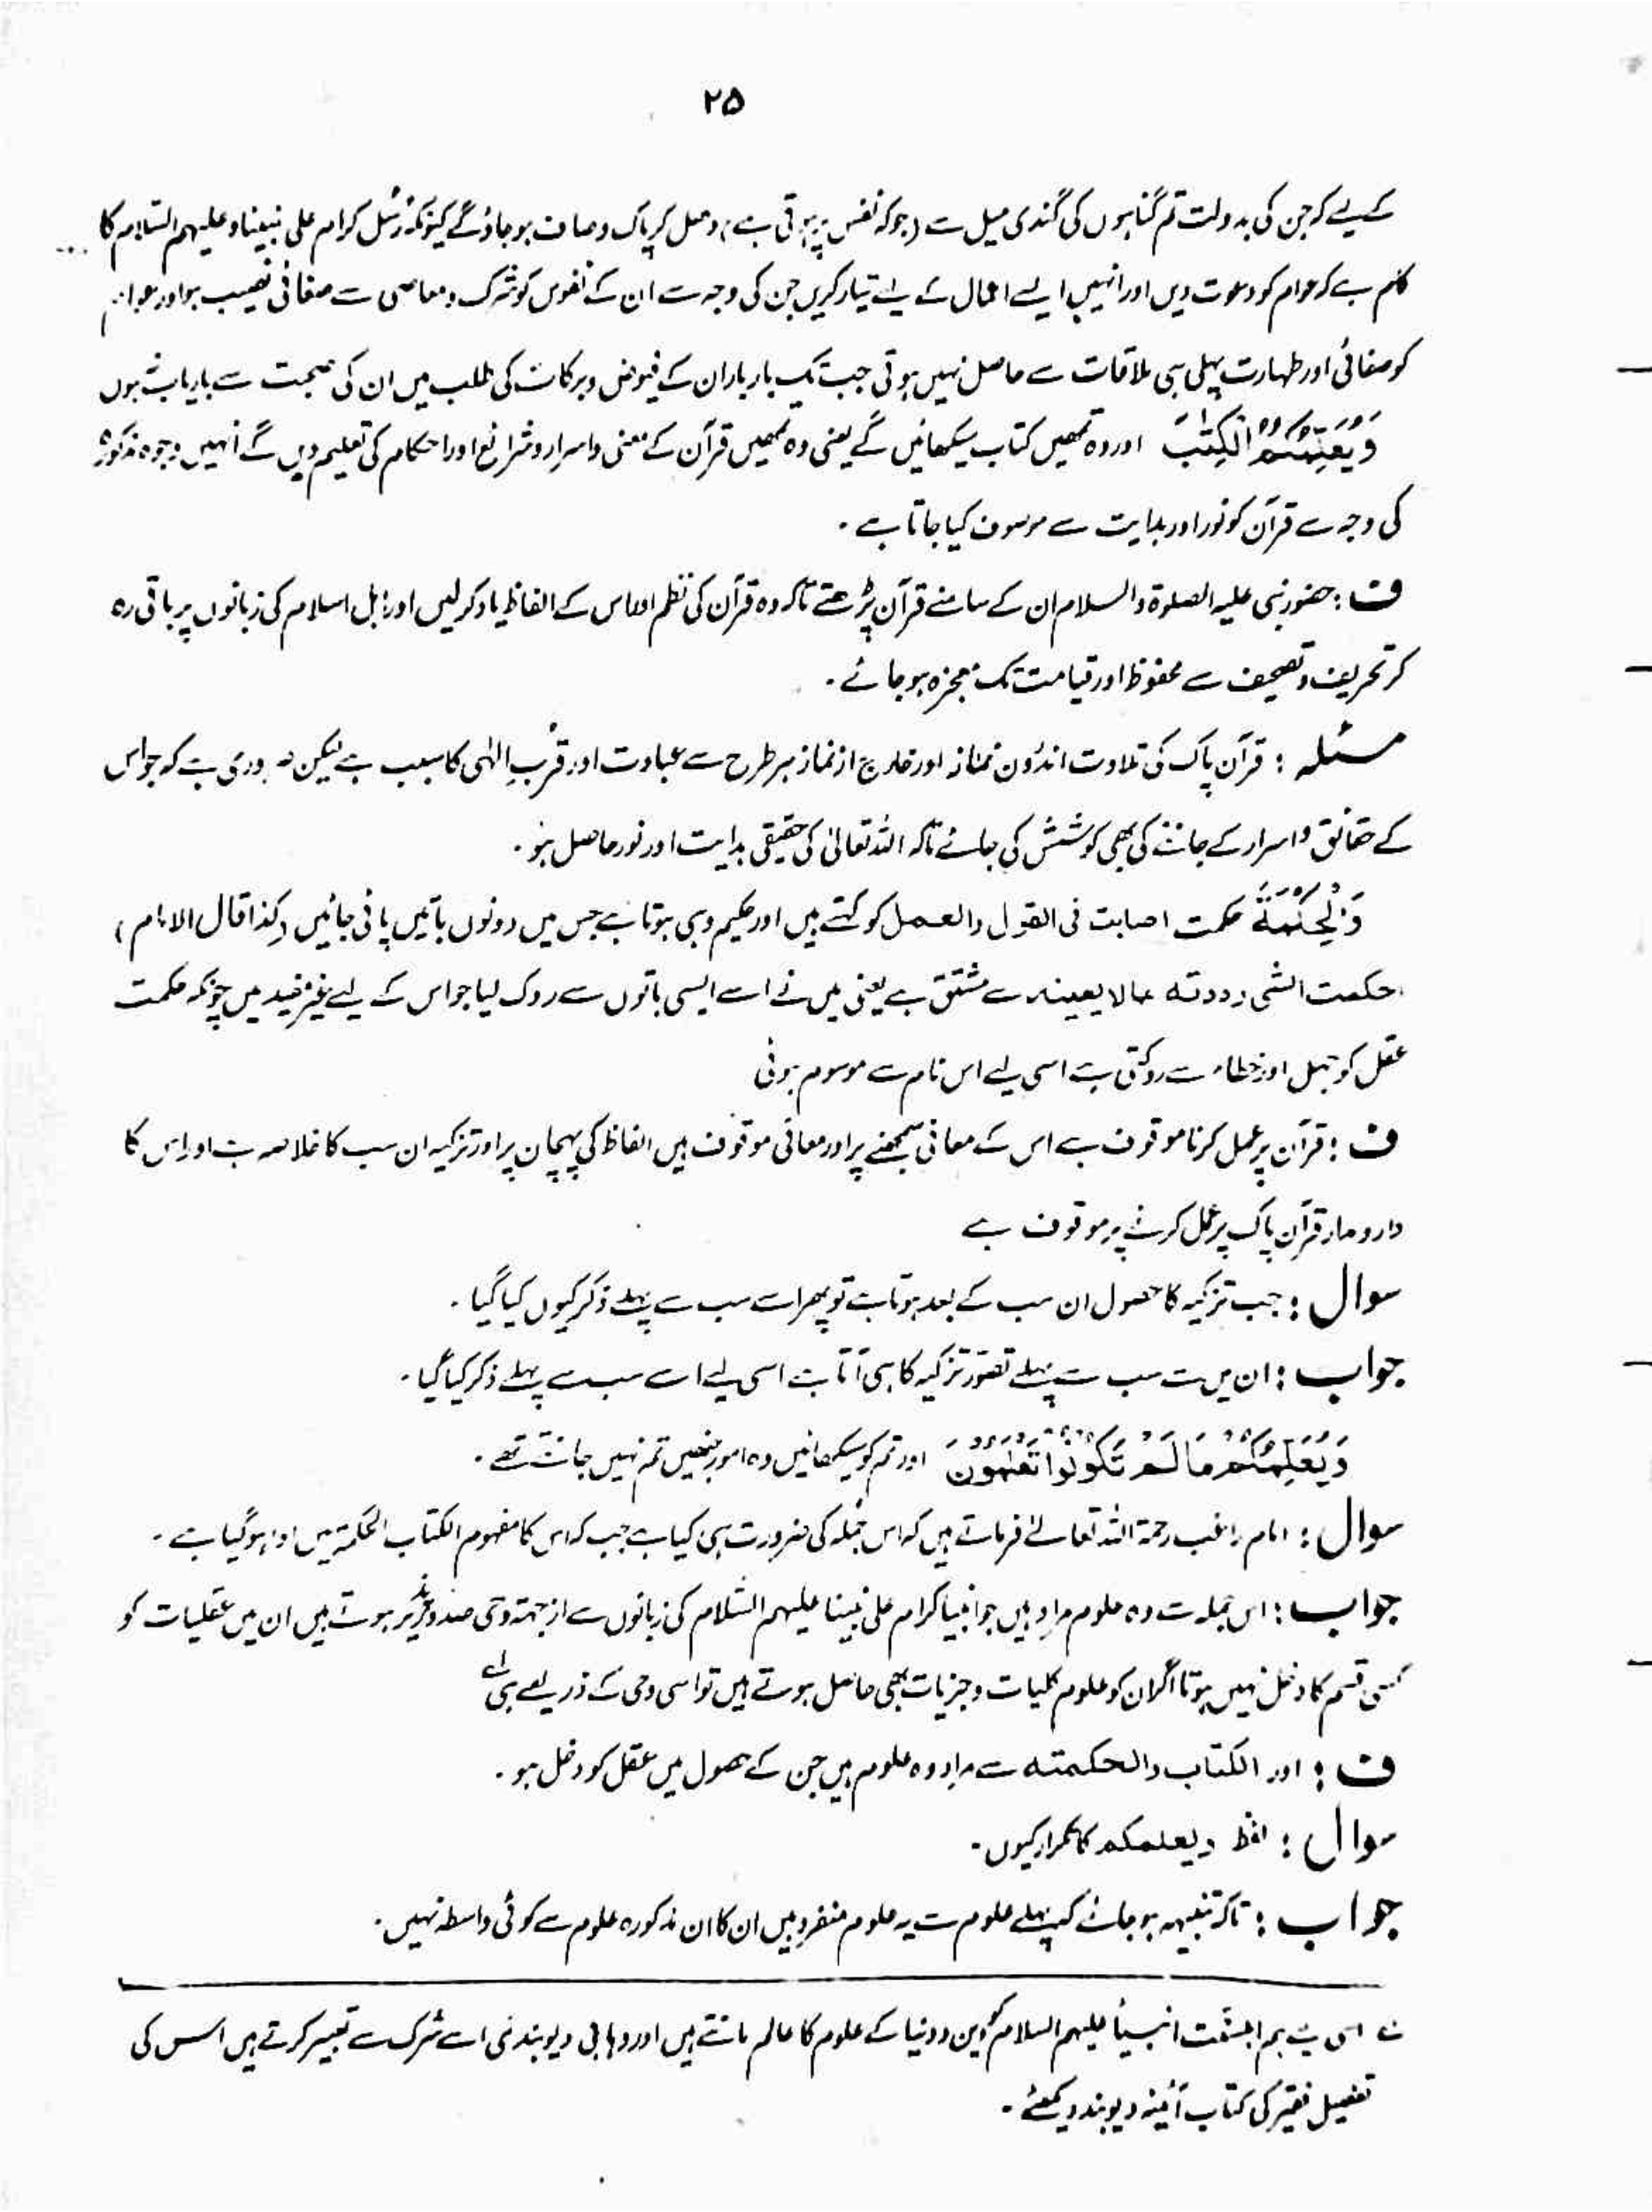 ۲۵
کے لیے کہ جن کی بدولت تم گناہوں کی گندی میل سے (جو کہ نفس پر ہوتی ہے) دھل کر پاک و صاف ہو جاؤ گے کیونکہ رسل کرام علی نبینا و علیہم السلام کا
کام ہے کہ عوام کو دعوت دیں اور انہیں ایسے اعمال کے لیے تیار کریں جن کی وجہ سے ان کے نفوس کو شرک و معاصی سے صفائی نصیب ہو اور عوام
کو صفائی اور طہارت پہلی ہی ملاقات سے حاصل نہیں ہوتی جب تک بار بار ان کے فیوض و برکات کی طلب میں ان کی صحبت سے باریاب نہ ہوں
وَيُعَلِّمُكُمُ الْكِتٰبَ اور وہ تمھیں کتاب سیکھائیں گے یعنی وہ تمھیں قرآن کے معنی و اسرار و شرائع اور احکام کی تعلیم دیں گے انہیں وجوہ مذکورہ
کی وجہ سے قرآن کو نور اور ہدایت سے موصوف کیا جاتا ہے ۔
ف : حضور نبی علیہ الصلوۃ والسلام ان کے سامنے قرآن پڑھتے تاکہ وہ قرآن کی نظم اور اس کے الفاظ یاد کر لیں اور اہل اسلام کی زبانوں پر باقی رہ
کر تحریف و تصحیف سے محفوظ اور قیامت تک معجزہ ہو جائے ۔
مسئلہ : قرآن پاک کی تلاوت اندرون نماز اور خارج از نماز ہر طرح سے عبادت اور قرب الٰہی کا سبب ہے لیکن ضروری ہے کہ جو اس
کے حقائق و اسرار کے جاننے کی بھی کوشش کی جائے تاکہ اللہ تعالیٰ کی حقیقی ہدایت اور نور حاصل ہو ۔
وَالْحِكْمَةَ حکمت اصابت فی القول والعمل کو کہتے ہیں اور حکیم وہی ہوتا ہے جس میں دونوں باتیں پائی جائیں (کذا قال الامام)
احکمت الشی رددتہ عما لا یعینہ سے مشتق ہے یعنی میں نے اسے ایسی باتوں سے روک لیا جو اس کے لیے غیر مفید ہیں چونکہ حکمت
عقل کو جہل اور خطاء سے روکتی ہے اسی لیے اس نام سے موسوم ہوئی
ف : قرآن پر عمل کرنا موقوف ہے اس کے معانی سمجھنے پر اور معانی موقوف ہیں الفاظ کی پہچان پر اور تزکیہ ان سب کا خلاصہ ہے اور اس کا
دارومدار قرآن پاک پر عمل کرنے پر موقوف ہے
سوال : جب تزکیہ کا حصول ان سب کے بعد ہوتا ہے تو پھر اسے سب سے پہلے ذکر کیوں کیا گیا ۔
جواب : ان میں سے سب سے پہلے تصور تزکیہ کا ہی آتا ہے اسی لیے اسے سب سے پہلے ذکر کیا گیا ۔
وَيُعَلِّمُكُمْ مَا لَمْ تَكُوْنُوْا تَعْلَمُوْنَ اور تم کو سیکھائیں وہ امور جنھیں تم نہیں جانتے تھے ۔
سوال : امام راغب رحمۃ اللہ تعالےٰ فرماتے ہیں کہ اس جملہ کی ضرورت ہی کیا ہے جب کہ اس کا مفہوم الکتاب الحکمۃ میں ادا ہو گیا ہے ۔
جواب : اس جملہ سے وہ علوم مراد ہیں جو انبیا کرام علی نبینا علیہم السلام کی زبانوں سے از جہتہ وحی صدور پذیر ہوتے ہیں ان میں عقلیات کو
کسی قسم کا دخل نہیں ہوتا اگر ان کو علوم کلیات و جزیات بھی حاصل ہوتے ہیں تو اسی وحی کے ذریعے ہی لے
ف : اور الکتاب والحکمتہ سے مراد وہ علوم ہیں جن کے حصول میں عقل کو دخل ہو ۔
سوال : لفظ ویعلمکم کا تکرار کیوں ۔
جواب : تاکہ تنبیہہ ہو جائے کہ پہلے علوم سے یہ علوم منفرد ہیں ان کا ان مذکورہ علوم سے کوئی واسطہ نہیں ۔
اسی لیے ہم اہلسنت انبیأ علیہم السلام کو دین و دنیا کے علوم کا عالم مانتے ہیں اور وہابی دیوبندی اسے شرک سے تعبیر کرتے ہیں اس کی
تفصیل فقیر کی کتاب آئینہ دیوبند دیکھئے ۔